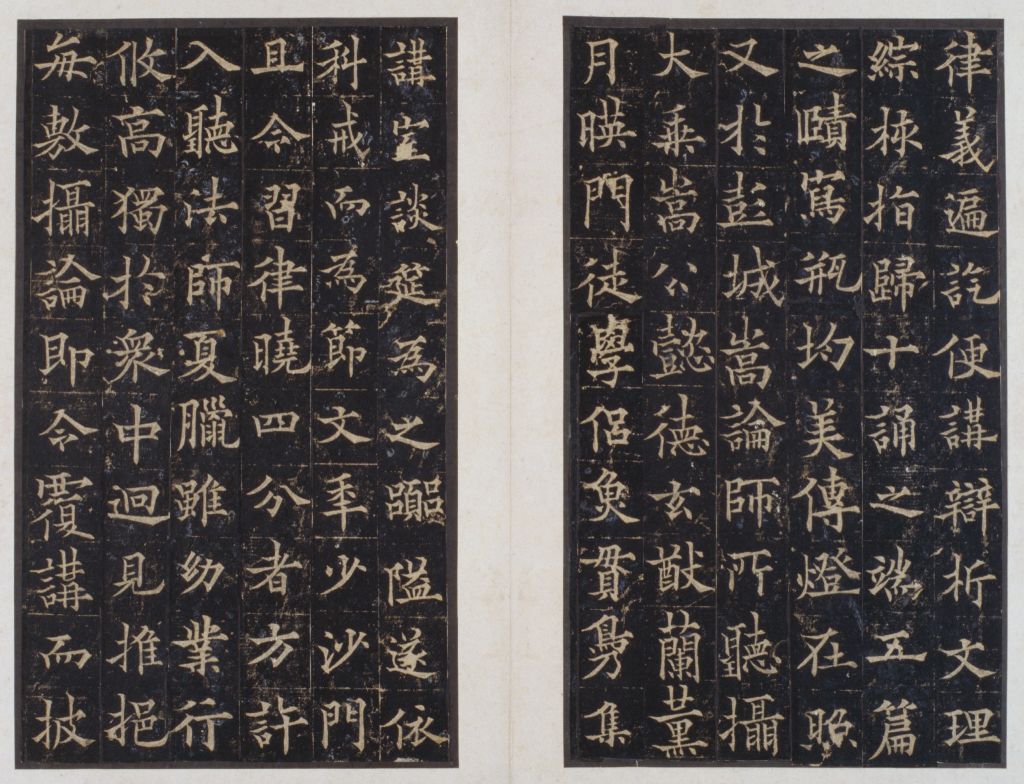 律義遍訖便講辯析文理
綜採指歸十誦之端五篇
之賾寫瓶均美傳燈在照
又於彭城嵩論師所聽攝
大乘嵩公懿德玄猷蘭薰
月暎門徒學侶魚貫鳧集
講室談筵為之嚻隘遂依
科戒而為節文年少沙門
且令習律曉四分者方許
入聽法師夏臘雖幼業行
攸高獨於衆中迥見推挹
每敷攝論即令覆講而披